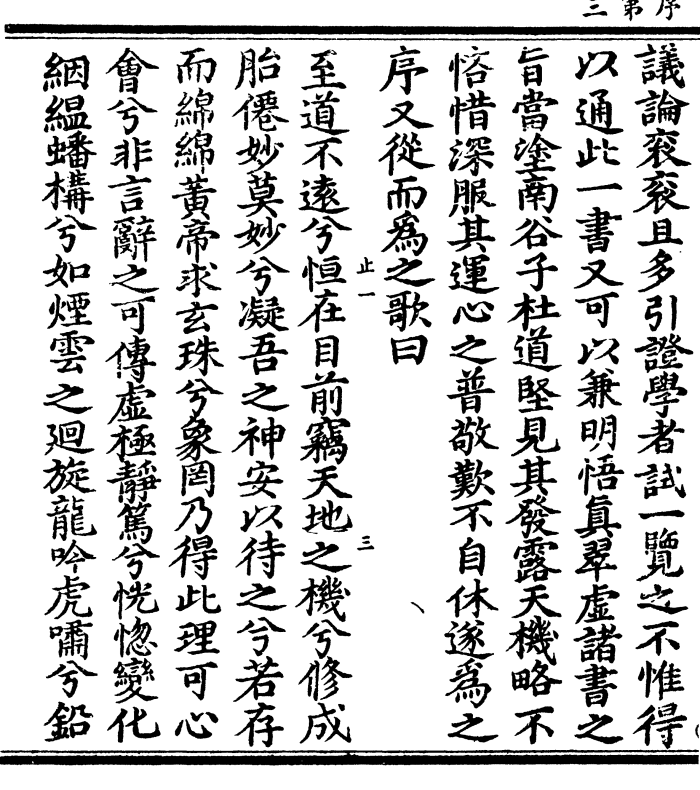 序第三
議論衮衮且多引證學者試一覽之不惟得
以通此一書又可以兼明悟眞翠虛諸書之
旨當塗南谷子杜道堅見其發露天機略不
悋惜深服其運心之普敬歎不自休遂爲之
序又從而爲之歌曰
止一
三
至道不遠兮恒在目前竊天地之機兮修成
胎僊妙莫妙兮凝吾之神安以待之兮若存
而綿綿黃帝求玄珠兮象罔乃得此理可心
會兮非言辭之可傳虛極靜篤兮恍惚變化
絪縕蟠構兮如煙雲之迴旋龍吟虎嘯兮鉛